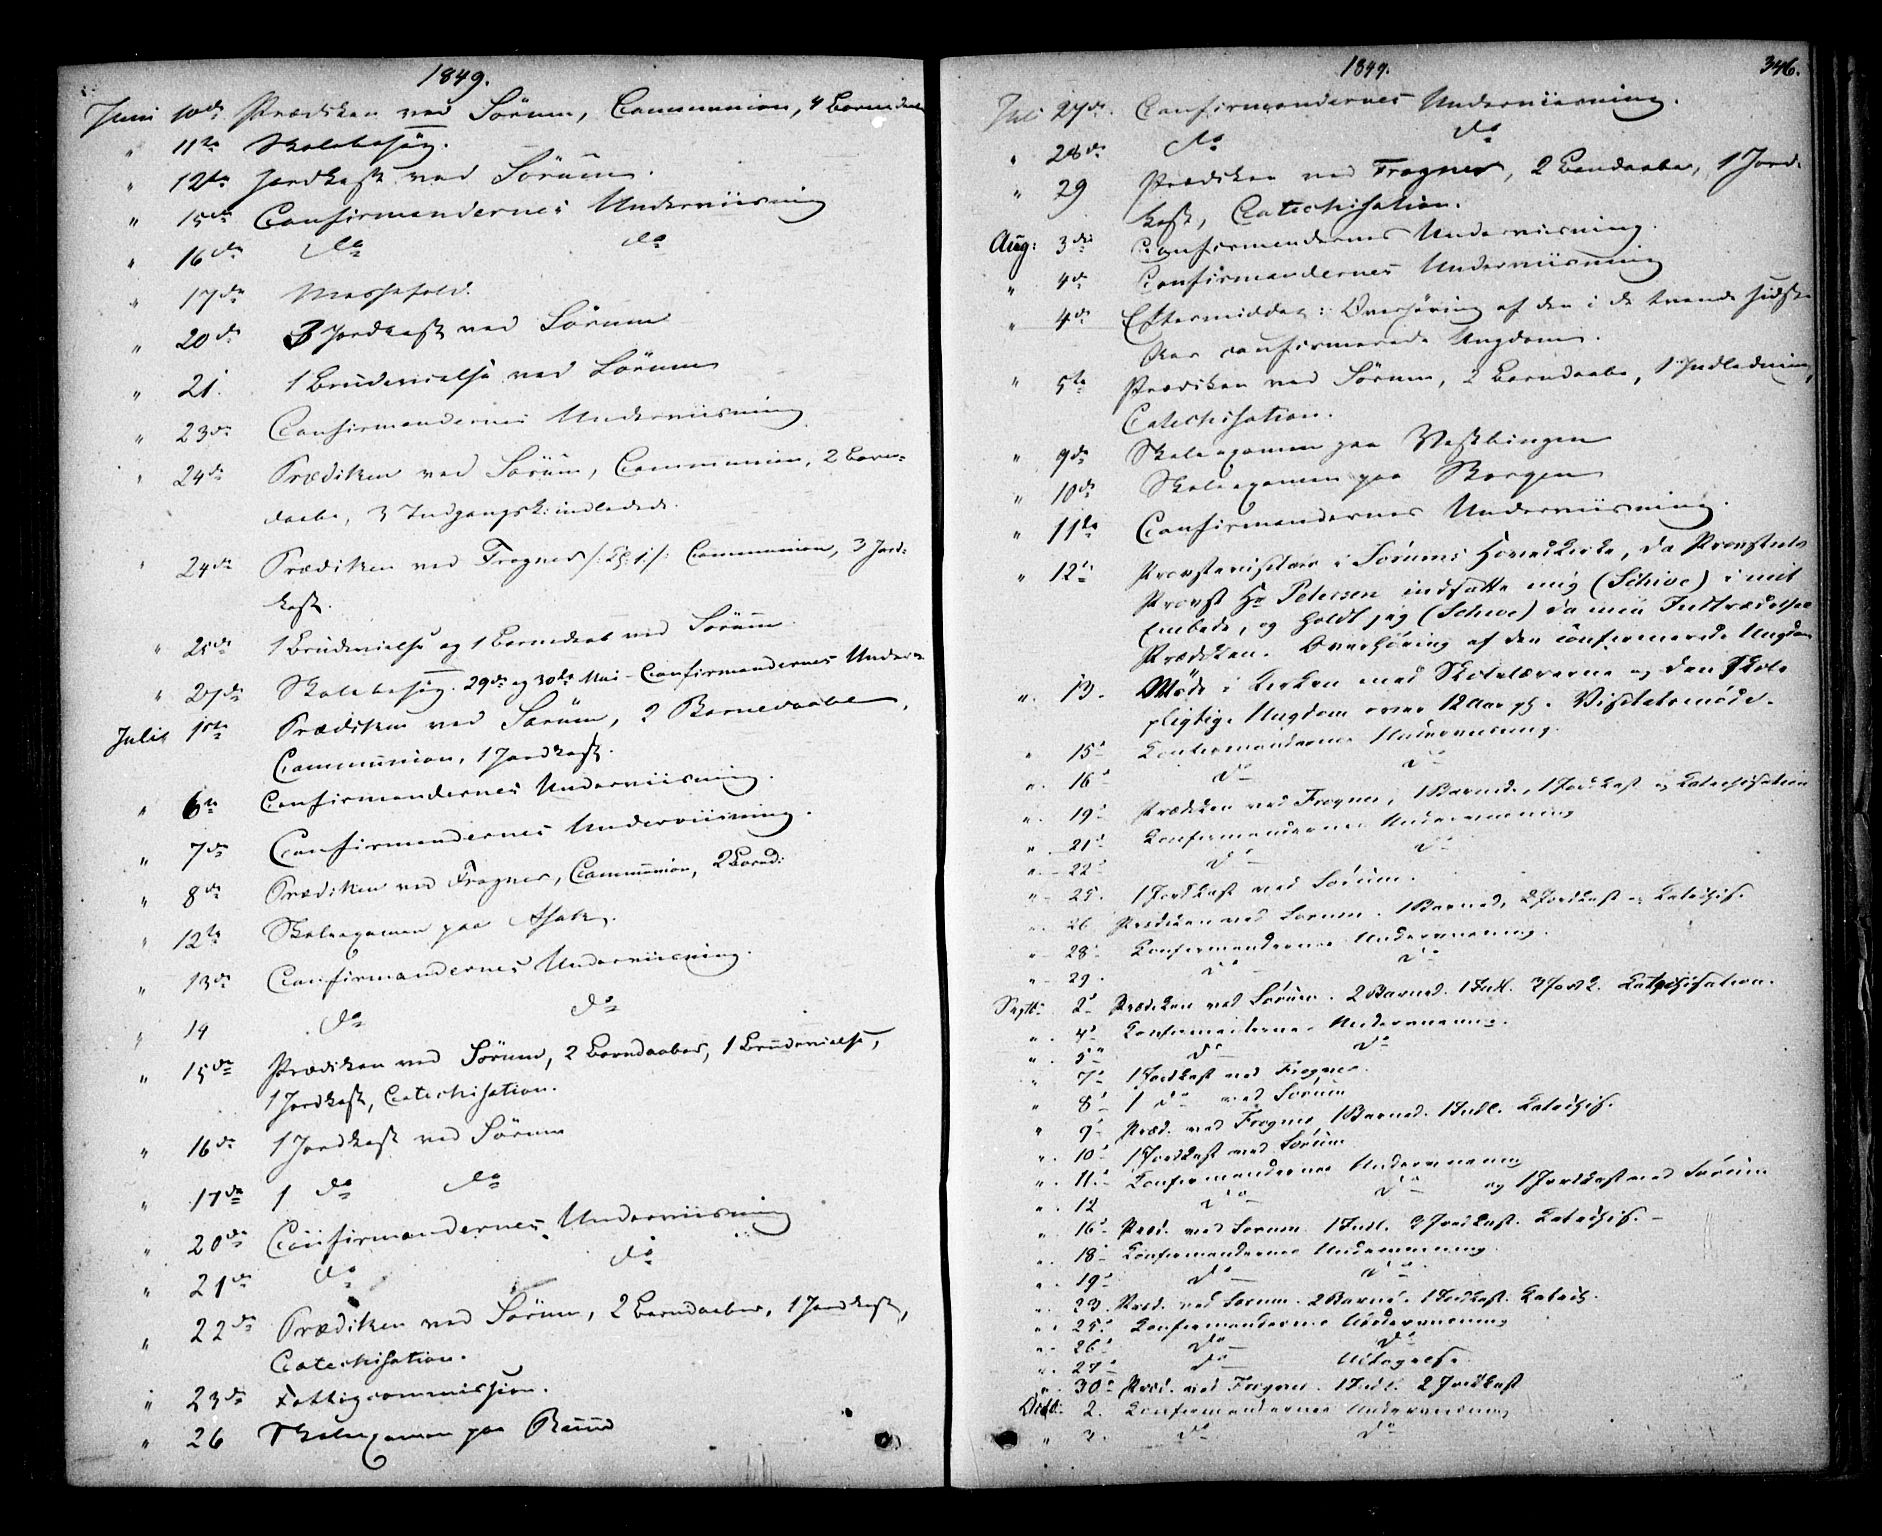 1849.
Juni 10de Prædiken ved Sörum, Communion, 4 Barnedaab
" 11te Skolebesög.
" 12te Jordkast ved Sörum.
" 15de Confirmandernes Underviisning
" 16de do do
" 17de Messefald.
" 20de 3 Jordkast ved Sörum
" 21. 1 Brudevielse ved Sörum
" 23de Confirmandernes Underviisning
" 24de Prædiken ved Sörum, Communion, 2 Barne-
daabe, 3 Indgangsk: indledede.
" 24de Prædiken ved Frogner Communion, 3 Jord-
kast.
" 25de 1 Brudevielse og 1 Barnedaab ved Sörum.
" 27de Skolebesög. 29de og 30de Mai - Confirmandernes Underv.
Julii 1ste Prædiken ved Sörum, 2 Barnedaabe,
Communion, 1 Jordkast.
" 6te Confirmandernes Underviisning.
" 7de Confirmandernes Underviisning.
" 8de Prædiken ved Frogner, Communion, 2 Barnd:
" 12te Skoleexamen paa Asak.
" 13de Confirmandernes Underviisning.
" 14 do do
" 15de Prædiken ved Sörum, 2 Barndaaber, 1 Brudevielse,
1 Jordkast, Catechisation.
" 16de 1 Jordkast ved Sörum
" 17de 1 do do
" 20de Confirmandernes Underviisning
" 21de do do
" 22de Prædiken ved Sörum, 2 Barndaaber, 1 Jordkast,
Catechisation.
" 23de Fattigcommission.
" 26 Skoleexamen paa
1849. 346.
Juli 27de. Confirmandernes Underviisning.
" 28de do do
" 29 Prædiken ved Frogner, 2 Barndaaber, 1 Jord-
kast, Catechisation.
Aug: 3die Confirmandernes Underviisning.
" 4de Confirmandernes Underviisning
" 4de Eftermiddag: Overhöring af den i de tvende sidste
Aar confirmerede Ungdom.
" 5te Prædiken ved Sörum, 2 Barndaabe, 1 Indledning,
Catechisation.
" 9de Skoleexamen paa Vestbingen
" 10de Skoleexamen paa Borgen
" 11te Confirmandernes Underviisning.
" 12te Provstevisitats i Sörums Hovedkirke, da
Provst Hr Petersen indsatte mig (Schive) i mit
Embede, og holdt jeg (Schive) da min Indtrædelses
Prædiken. Overhöring af den confirmerede Ungdom
" 13. Möde i Kirken med Skolelærerne og den skole
pligtige Ungdom over 12 Aar Visitatsmöde.
" 15 Konfirmandernes Underviisning.
" 16 do do
" 19 Prædiken ved Frogner, 1 Barned., 1 Jordkast og Katechisation
" 21 Konfirmandernes Underviisning
" 22 do do
" 25. 1 Jordkast ved Sörum.
" 26 Prædiken ved Sörum. 1 Barned, 2 Jordkast og Katechis.
" 28 Konfirmandernes Underviisning.
" 29. do do
Septb: 2 Prædiken ved Sörum. 2 Barned. 1 Indl. 3 Jordk. Katechisation.
" 4 Konfirmandernes Underviisning.
" 5 do do
" 7 1 Jordkast ved Frogner.
" 8 1 do ved Sörum
" 9 Præd. ved Frogner 1 Barned. 1 Indl. Katechis.
" 10 1 Jordkast ved Sörum
" 11 Konfirmandernes Underviisning
" 12 do do og 1 Jordkast ved Sörum
" 16 Præd. ved Sörum. 1 Indl. 3 Jordkast. Katechis.
" 18 Konfirmandernes Underviisning.
" 19 do do
" 23. Præd. ved Sörum. 2 Barned. 1 Jordkast. Katech.
" 25. Konfirmandernes Underviisning
" 26 do do
" 27 do Udtagelse.
" 30 Præd. ved Frogner. 1 Indl. 2 Jordkast
Octb: 2. Konfirmandernes Underviisning
" 3. do do